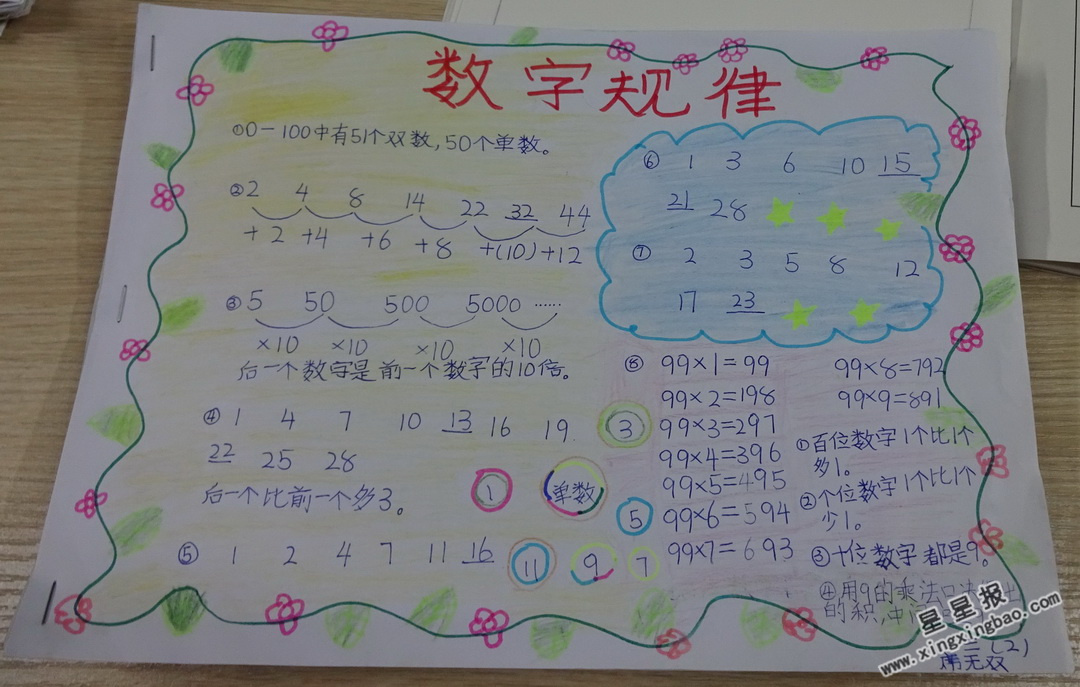 数字规律
①0-100中有51个双数,50个单数。
② 2 4 8 14 22 32 44
+2 +4 +6 +8 +(10) +12
③ 5 50 500 5000 ……
×10 ×10 ×10 ×10
后一个数字是前一个数字的10倍。
④ 1 4 7 10 13 16 19
22 25 28
后一个比前一个多3。
⑤ 1 2 4 7 11 16
1 单数 3
5
11 9 7
⑥ 1 3 6 10 15
21 28
⑦ 2 3 5 8 12
17 23
⑧ 99×1=99
99×2=198
99×3=297
99×4=396
99×5=495
99×6=594
99×7=693
99×8=792
99×9=891
①百位数字1个比1个
多1。
②个位数字1个比1个
少1。
③十位数字都是9。
④用9的乘法口
的积,中
(2)
无双
星星报
www.xingxingbao.com